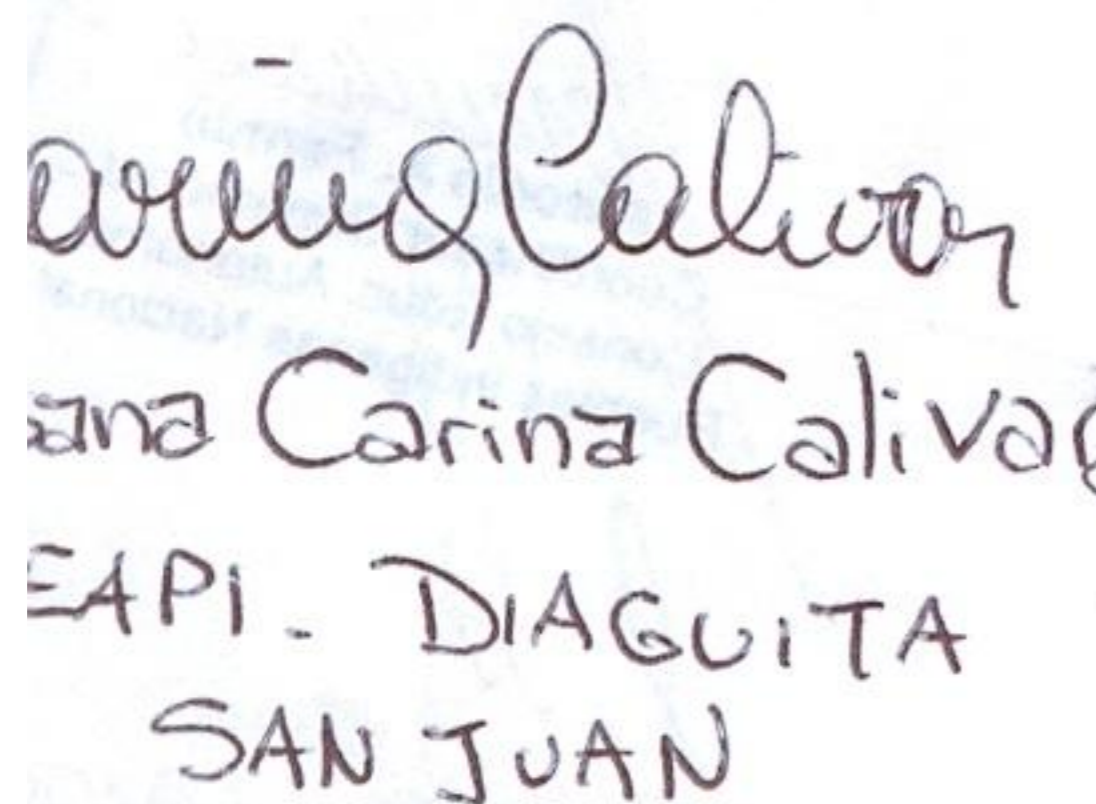 arina Calivar
sana Carina Caliva
EAPI. DIAGUITA
SAN JUAN